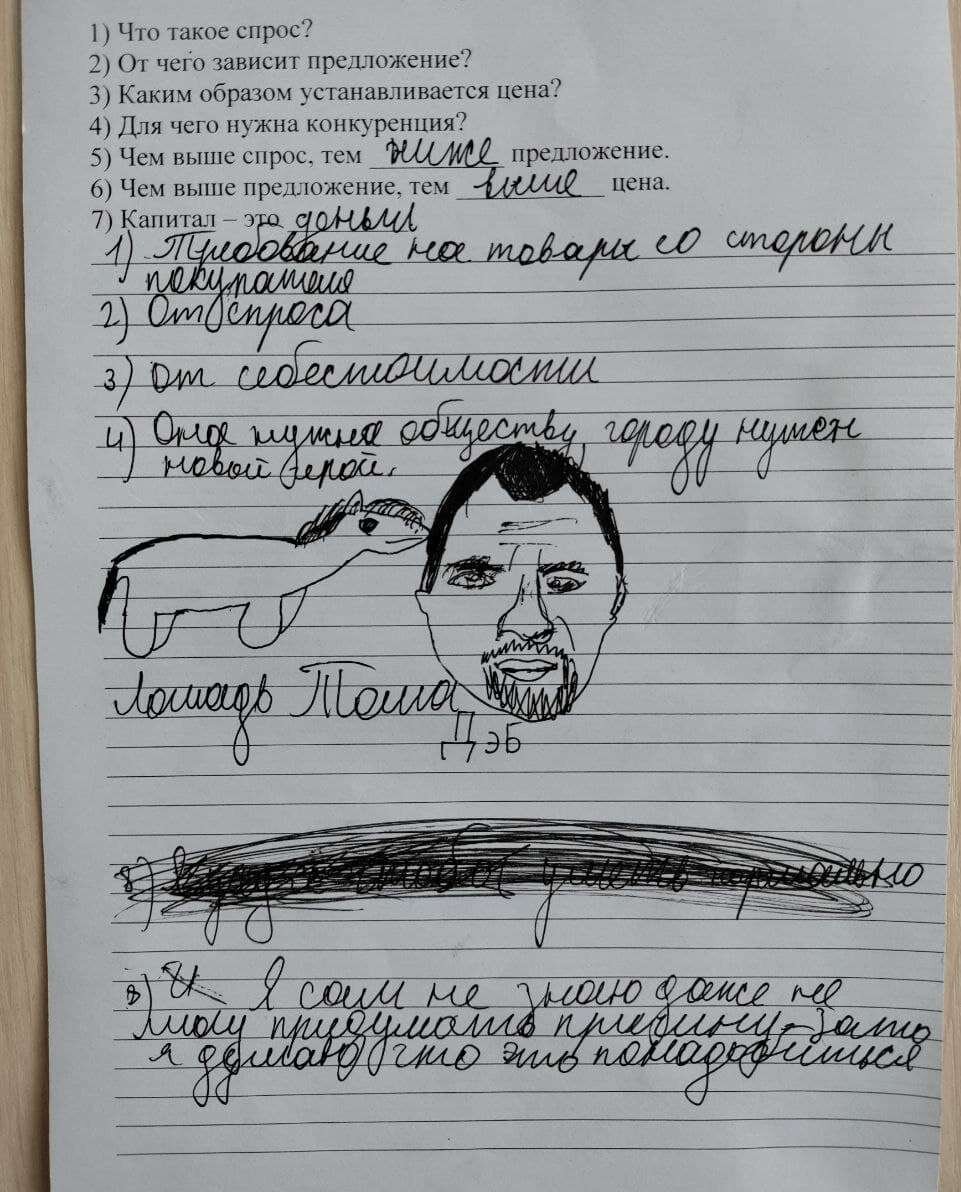 1) Что такое спрос?
2) От чего зависит предложение?
3) Каким образом устанавливается цена?
4) Для чего нужна конкуренция?
5) Чем выше спрос, тем ниже предложение.
6) Чем выше предложение, тем выше цена.
7) Капитал – это деньги
1) Требование на товары со стороны
покупателя
2) От спроса
3) от себестоимости
4) Она нужна обществу, городу нужен
новый герой.
Лошадь Тома
Дэб
8) уметь нормально
8) Я сам не знаю даже не
могу придумать причину, зато
я думаю что это понадобиться